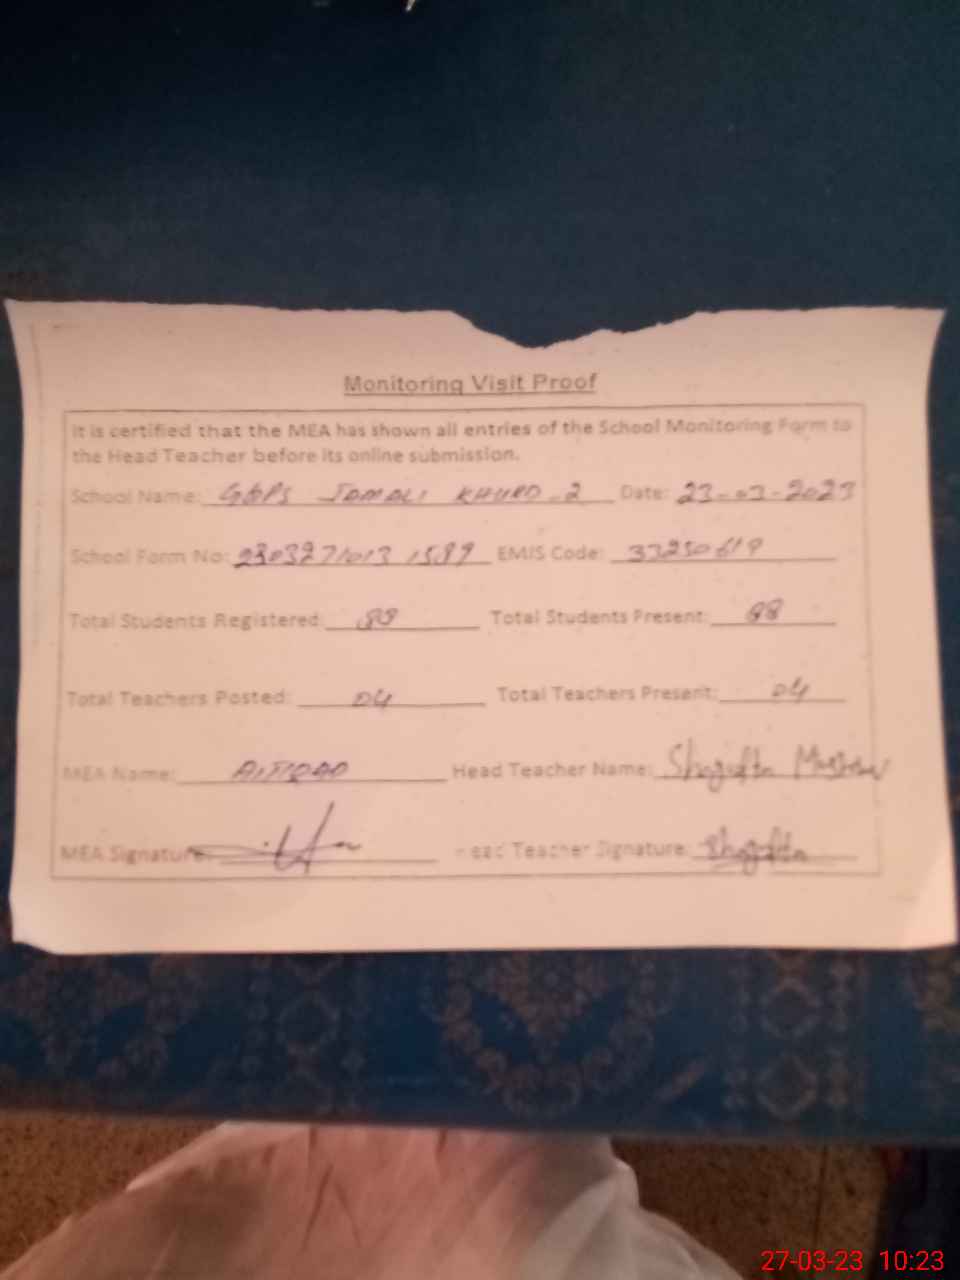 Monitoring Visit Proof
It is certified that the MEA has shown all entries of the School Monitoring Form to
the Head Teacher before its online submission.
School Name: GGPS JAMALI KHURD-2 Date: 23-03-2023
School Form No: EMIS Code:
Total Students Registered: 88 Total Students Present: 88
Total Teachers Posted: 04 Total Teachers Present: 04
MEA Name: Head Teacher Name: Shagufta
MEA Signature: Head Teacher Signature: Shagufta
27-03-23 10:23